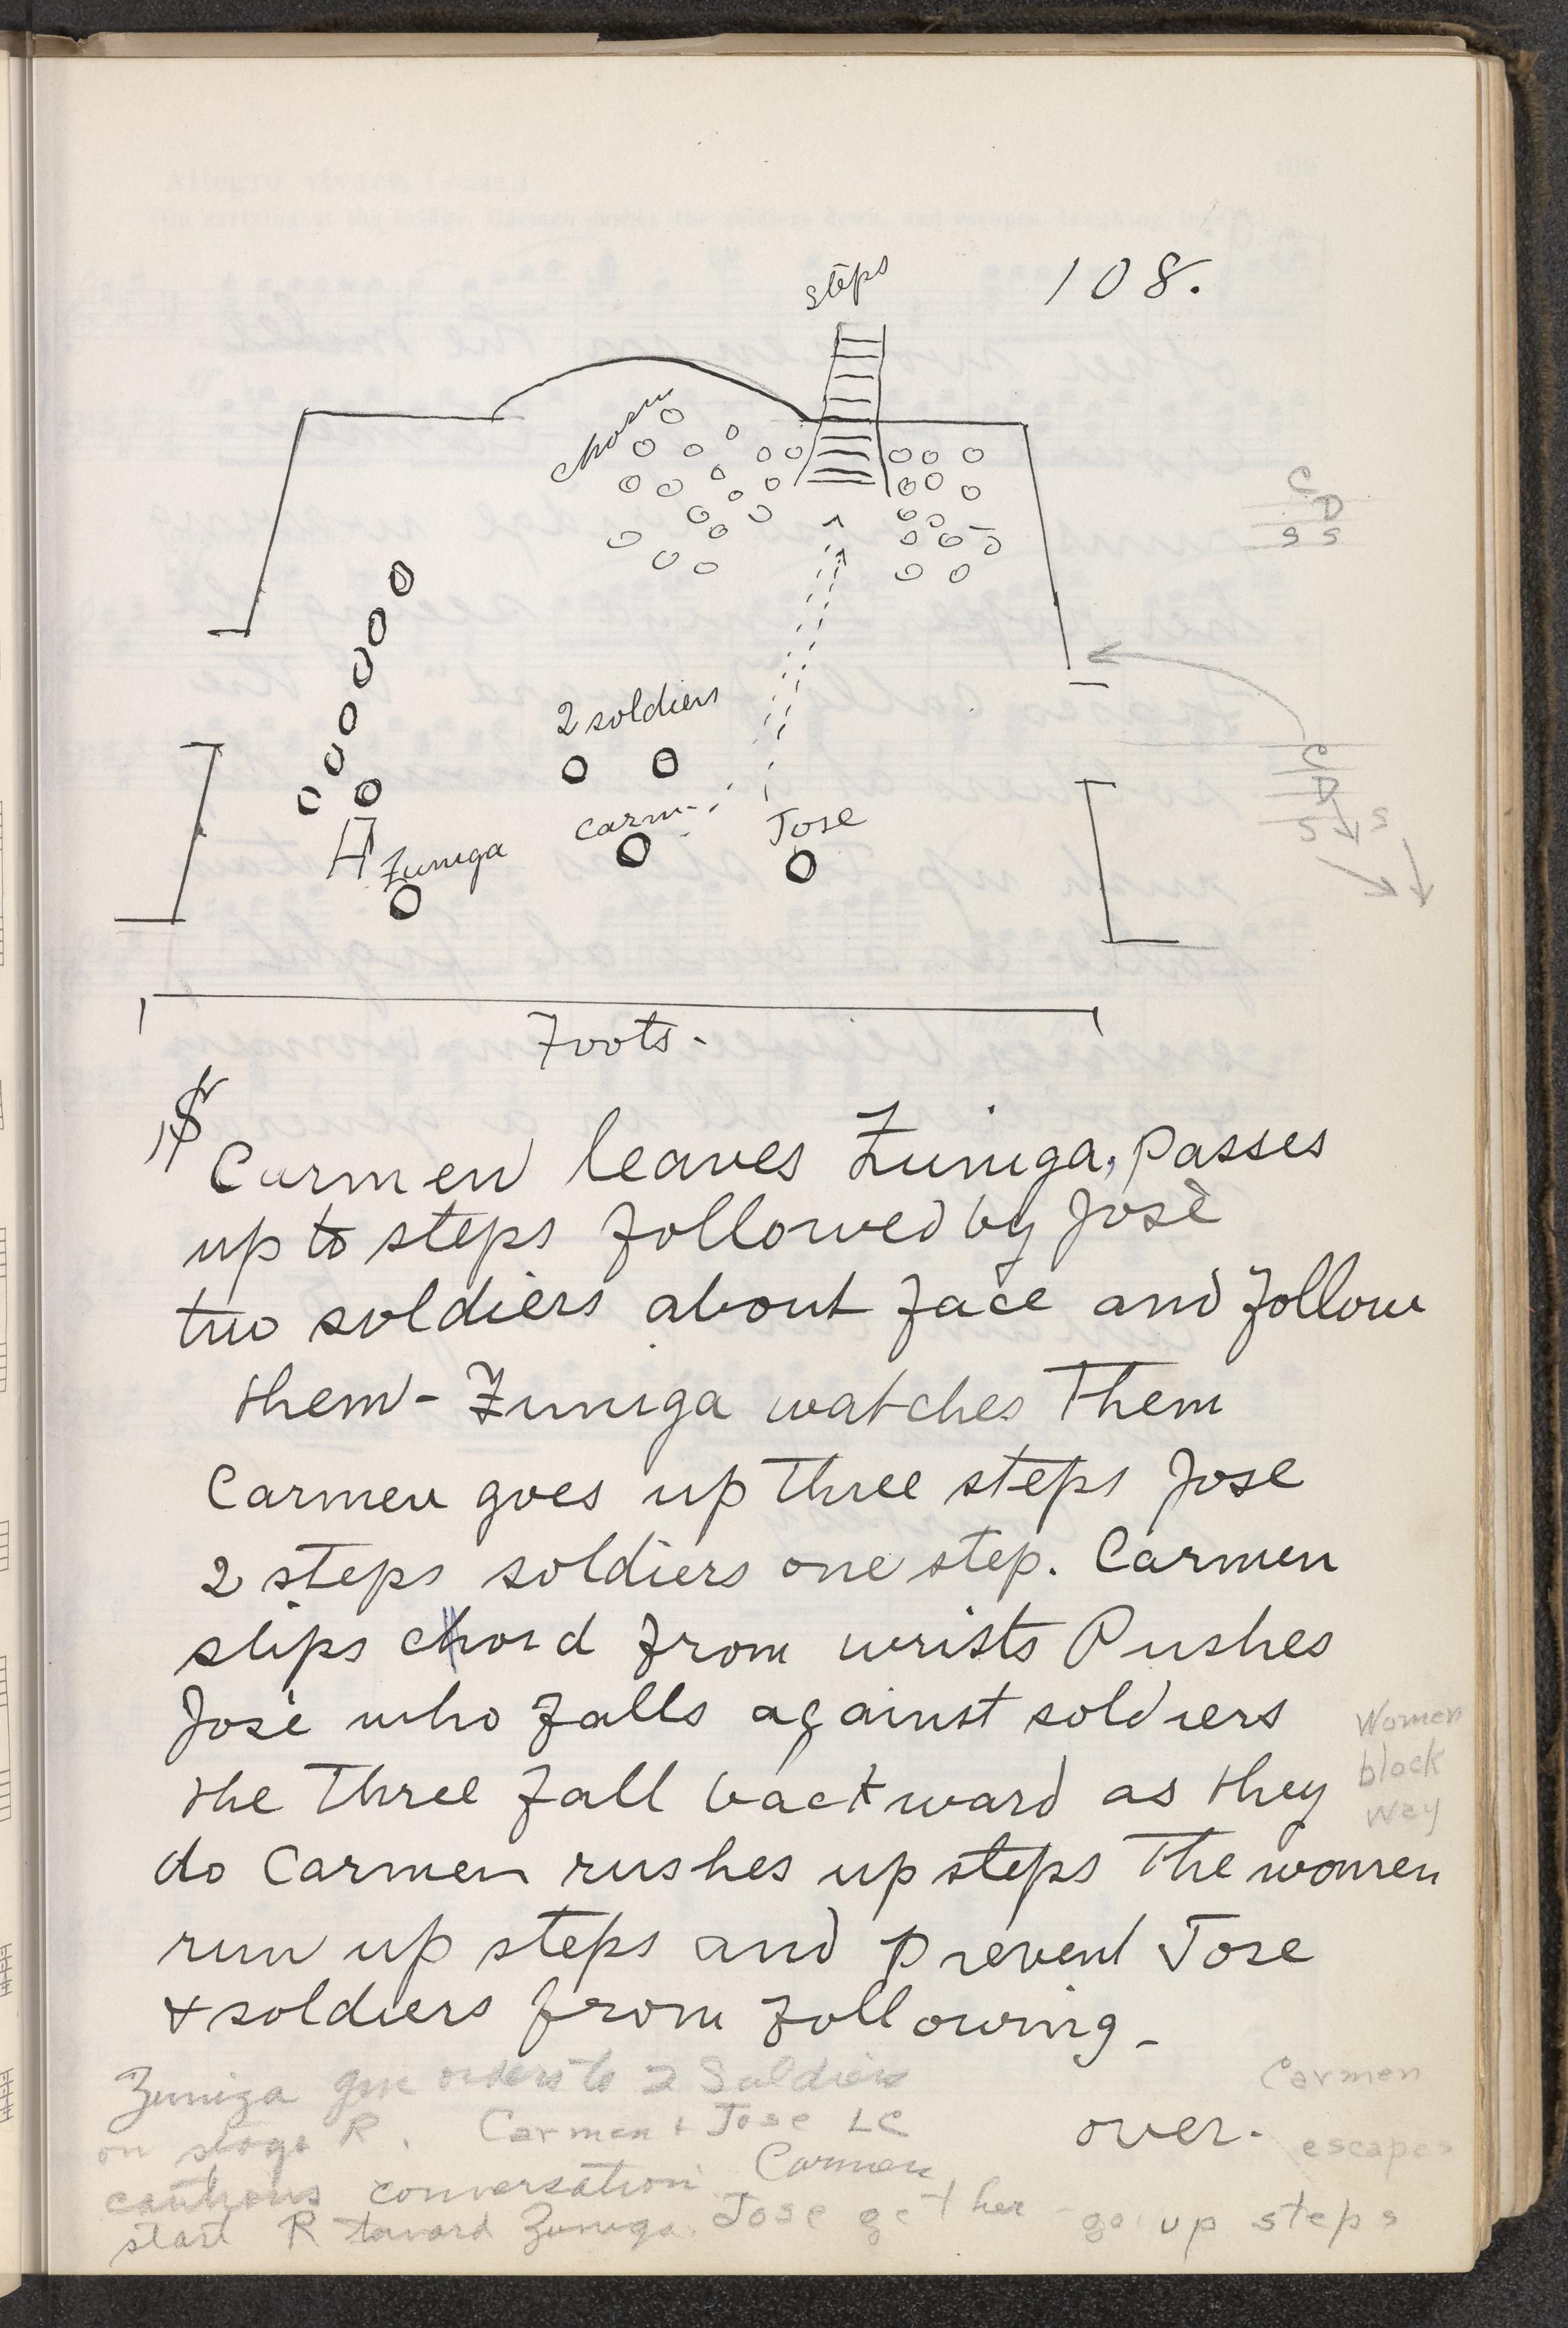 steps
108.
chorus
C
D
S S
2 soldiers
Carm-
Jose
Zuniga
C
D
S S
Foots-
Carmen leaves Zuniga, passes
up to steps followed by José
two soldiers about face and follow
them - Zuniga watches them
Carmen goes up three steps Jose
2 steps soldiers one step. Carmen
slips chord from wrists Pushes
José who falls against soldiers
the three fall backward as they
do Carmen rushes up steps The women
run up steps and prevent Jose
& soldiers from following -
Women
block
way
over.
Zuniga give orders to 2 Soldiers
on stage R. Carmen + Jose LC
cautious conversation Carmen
start R toward Zuniga. Jose get her - go up steps
Carmen
escapes